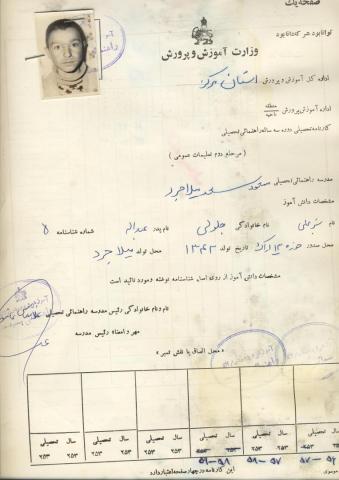 صفحه یک
توانا بود هر که دانا بود
وزارت آموزش و پرورش
اداره کل آموزش و پرورش استان مرکزی
اداره آموزش پرورش منطقه ناحیه
کارنامه تحصیلی دوره سه ساله راهنمائی تحصیلی
(مرحله دوم تعلیمات عمومی)
مدرسه راهنمائی تحصیلی مسعود سعد میلاجرد
مشخصات دانش آموز
نام شیرعلی نام خانوادگی نام پدر عبداله شماره شناسنامه ۵
محل صدور حوزه ۱۳ اراک تاریخ تولد ۱۳۴۳ محل تولد میلاجرد
مشخصات دانش آموز از روی اصل شناسنامه نوشته و مورد تائید است
نام و نام خانوادگی رئیس مدرسه راهنمائی تحصیلی
مهر و امضاء رئیس مدرسه
« محل الصاق یا نقش تمبر »
سال تحصیلی سال تحصیلی سال تحصیلی سال تحصیلی سال تحصیلی سال تحصیلی
۲۵۳ ۲۵۳ ۲۵۳ ۲۵۳ ۲۵۳ ۲۵۳
۵۶-۵۷ ۵۷-۵۸ ۵۸-۵۹
این کارنامه در چهار صفحه اعتبار دارد